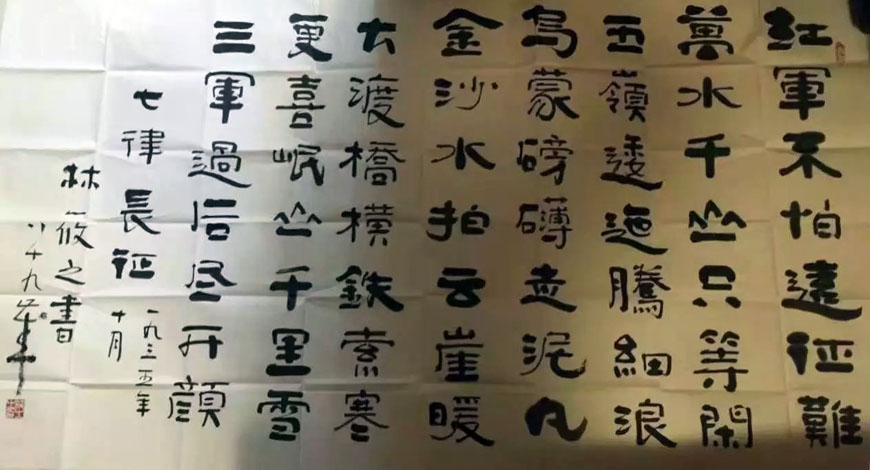 红軍不怕遠征難
萬水千山只等閑
五嶺逶迤騰細浪
烏蒙磅礴走泥丸
金沙水拍云崖暖
大渡橋横鉄索寒
更喜岷山千里雪
三軍過后尽开顔
七律長征
一九三五年
十月
林筱之書
八十九